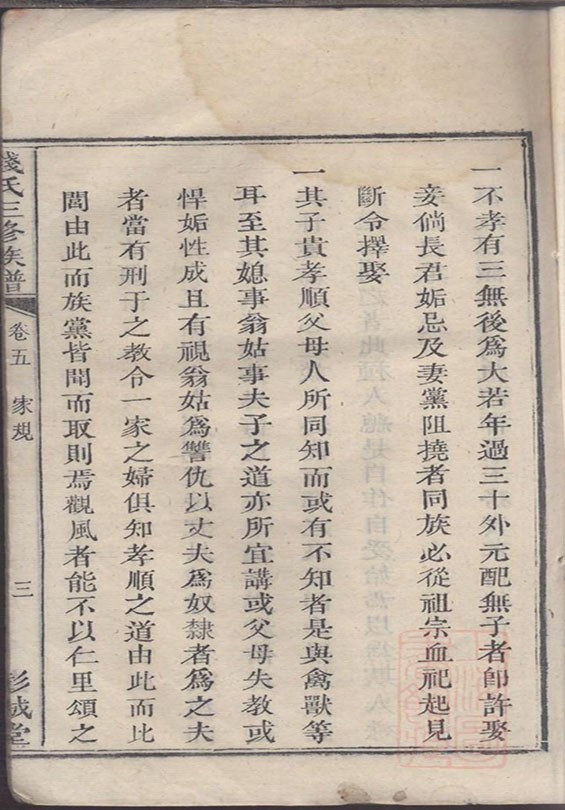 一不孝有三無後爲大若年過三十外元配無子者卽許娶
妾倘長君妬忌及妻黨阻撓者同族必從祖宗血祀起見
斷令擇娶
一其子貴孝順父母人所同知而或有不知者是與禽獸等
耳至其媳事翁姑事夫子之道亦所宜講或父母失教或
悍妬性成且有視翁姑爲讐仇以丈夫爲奴隸者爲之夫
者當有刑于之教令一家之婦俱知孝順之道由此而比
閭由此而族黨皆聞而取則焉觀風者能不以仁里頌之
錢氏三修族譜
卷五
家規
三
彭城堂